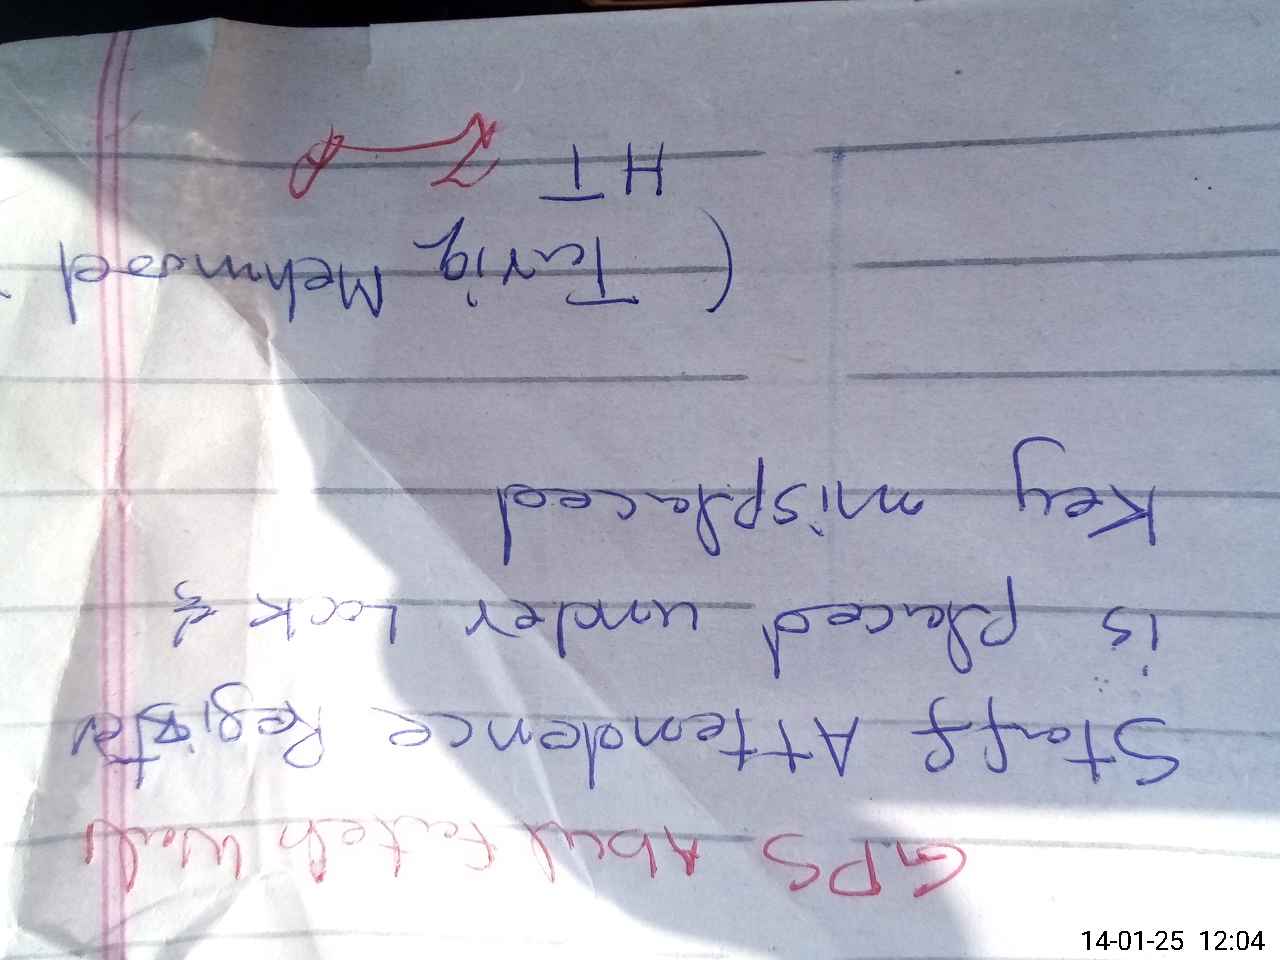 GPS Abul Fateh Wali
Staff Attendence Register
is placed under Lock &
Key misplaced
(Tariq Mehmood
HT
14-01-25 12:04